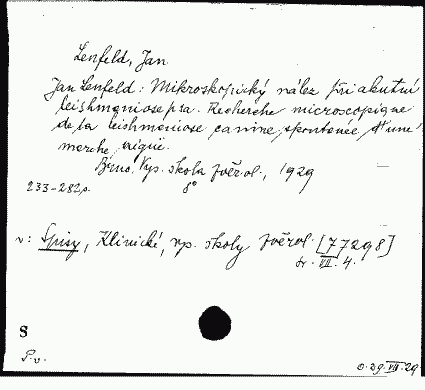 Lenfeld, Jan
Jan Lenfeld: Mikroskopický nález při akutní
leishmaniose psa. Recherche microscopique
de la leishmaniose canine, spontanée d'une
marche aigüe.
Brno, Vys. skola zvěrol., 1929
233-282p. 8°
v: Spisy, Klinické, vys. skoly zvěrol. [77298]
tr. VII. 4.
S
P.v. 0.29.VIII.29